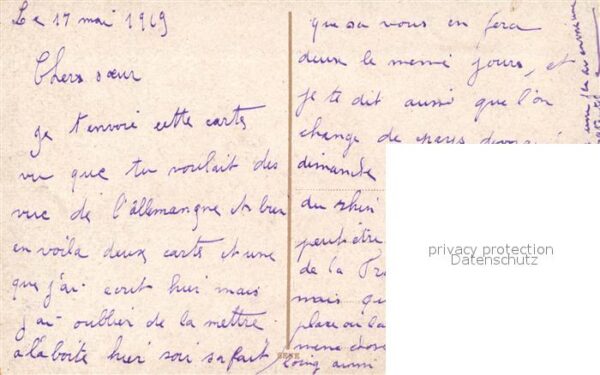 Le 17 mai 1919
Chers sœur
Je t'envoie cette cartes
vu que tu voulait des
vue de l'allemangne et bien
en voila deux cartes et une
que j'ai ecrit hier mais
j'ai oublier de la mettre
a la boite hier soir sa fait
que sa vous en fera
deux le meme jours, et
je te dit aussi que l'on
change de pays
dimanche
du rhin
peut être
de la
mais
place ou la
meme chose
loing aussi
privacy protection
Datenschutz